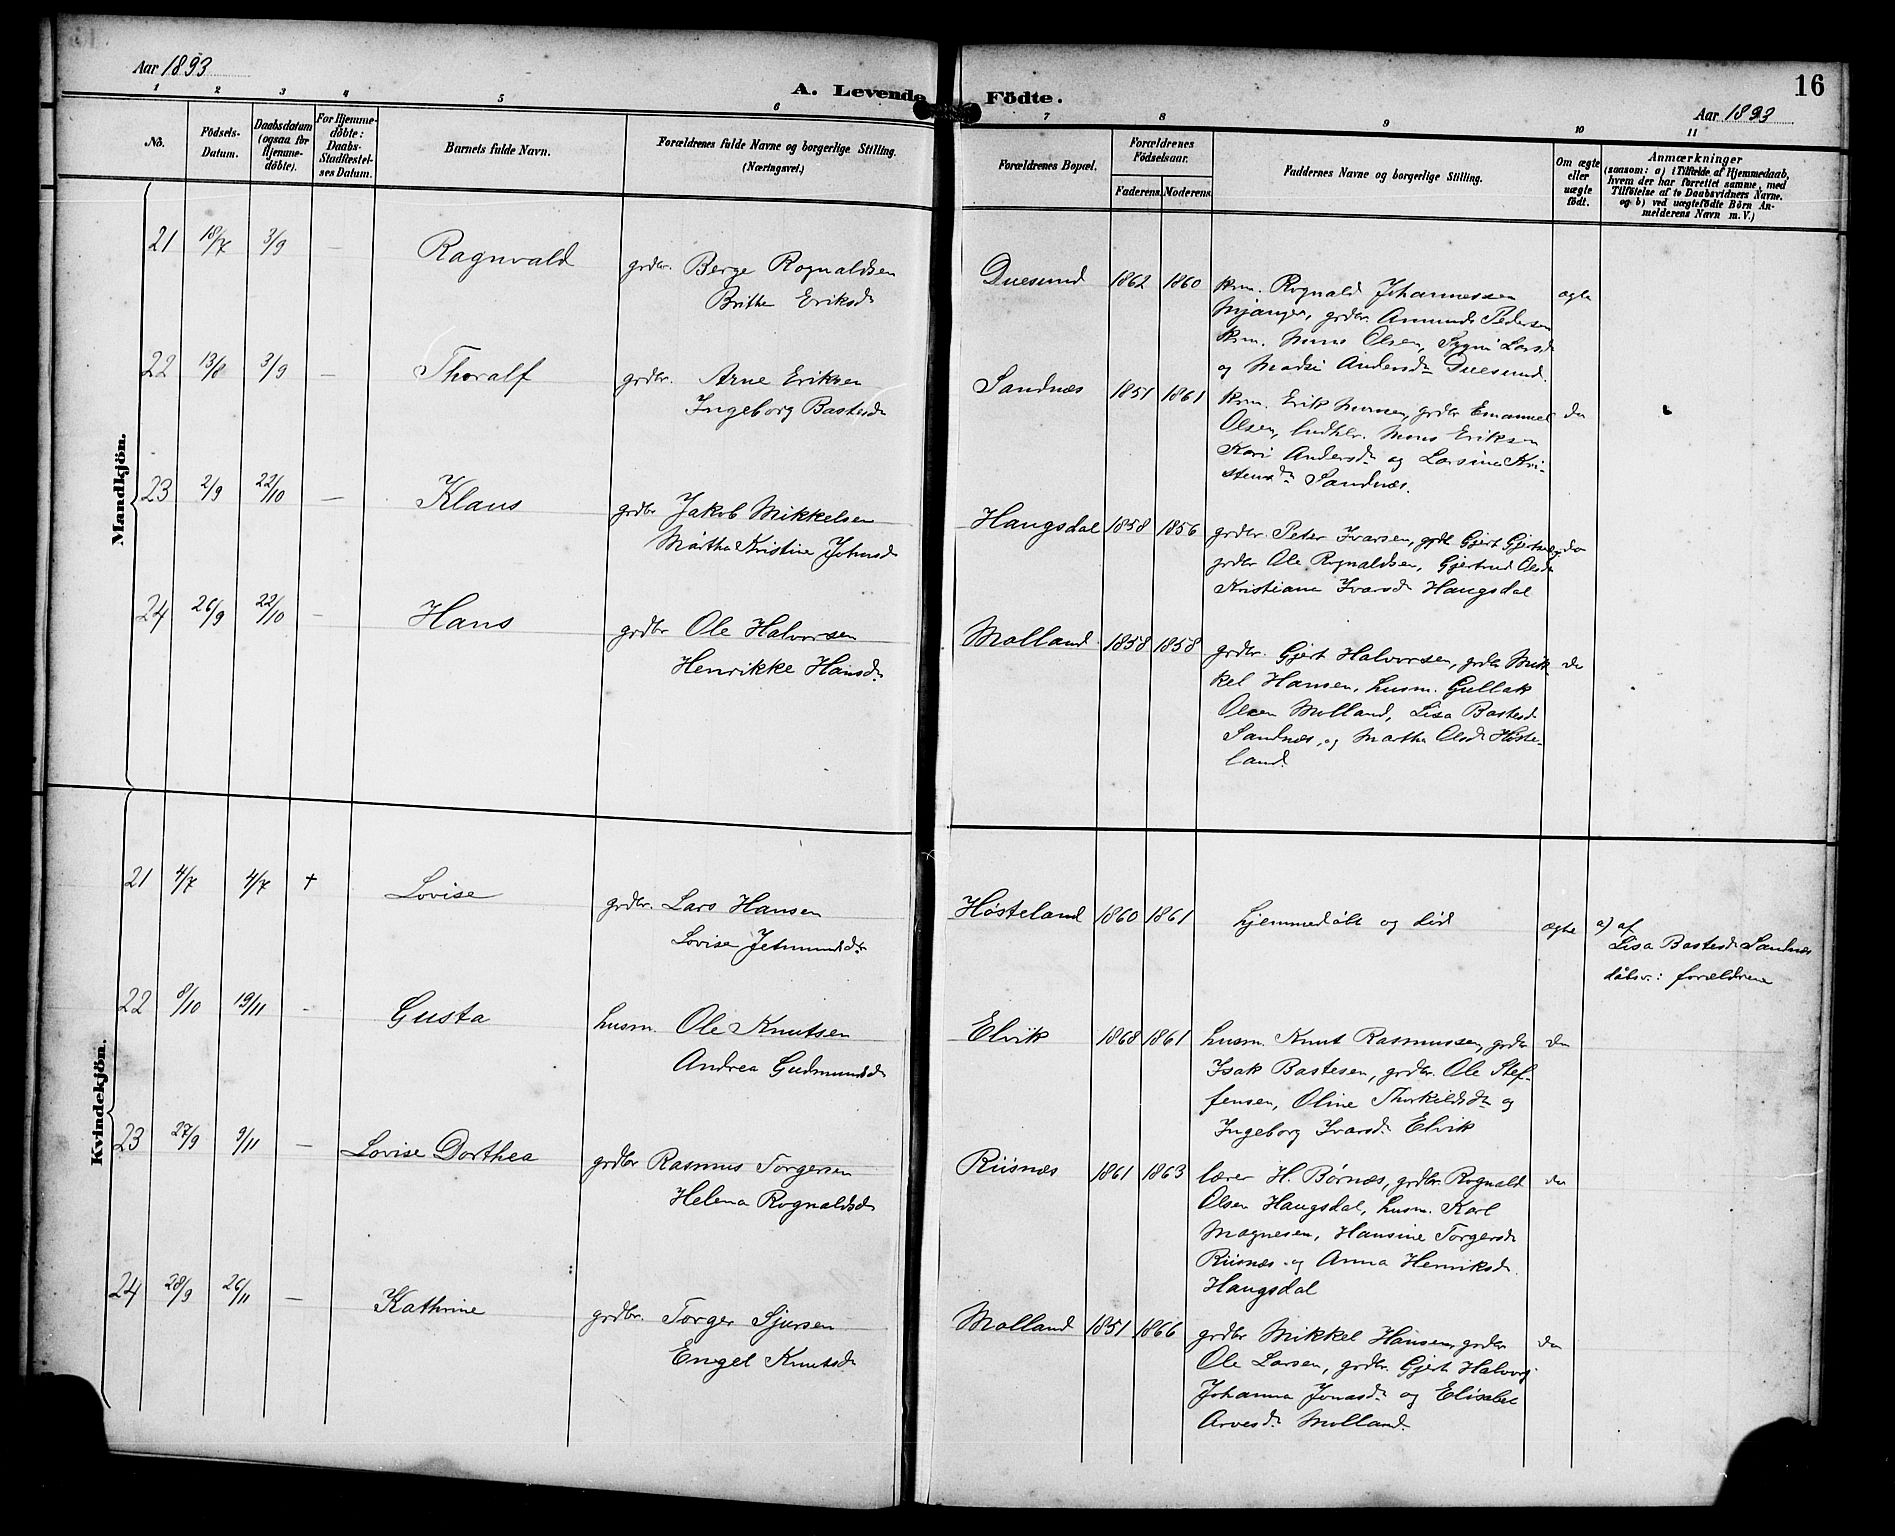 Aar 1893
A. Levende Födte.
16
Aar 1893
1 2 3 4 5 6 7 8 9 10 11
No.
Födsels-
Datum.
Daabsdatum
(ogsaa for
Hjemme-
döbte).
For Hjemme-
döbte:
Daabs-
Stadfæstel-
ses Datum.
Barnets fulde Navn.
Forældrenes fulde Navne og borgerlige Stilling.
(Næringsvei.)
Forældrenes Bopæl.
Forældrenes
Födselsaar.
Faderens. Moderens.
Faddernes Navne og borgerlige Stilling.
Om ægte
eller
uægte
födt.
Anmærkninger
(saasom: a) i Tilfælde af Hjemmedaab,
hvem der har forrettet samme, med
Tilföielse af to Daabsvidners Navne.
og b) ved uægtefödte Börn An-
melderens Navn m. V.)
Mandkjön.
21 18/7 3/9 — Ragnvald
grdbr. Berge Rognaldsen
Brithe Eriksdr
Duesund 1862 1860
krm. Rognald Johannessen
Mjanger, grdbr. Amund Pedersen
krm. Mons Olsen, Larsdr
og Andersdr Duesund.
ægte
22 13/8 3/9 — Thoralf
grdbr. Arne Eriksen
Ingeborg Bastesdr
Sandnæs 1851 1861
krm. Erik Monsen, grdbr Emanuel
Olsen, Mons Eriksen
Kari Andersdr og Larsine Kri-
stensdr Sandnæs.
do
23 2/9 22/10 — Klaus
grdbr Jakob Mikkelsen
Martha Kristine Johnsdr
Haugsdal 1858 1856
grdbr. Peter Ivarsen, Gjert Gjertsen,
grdbr Ole Rognaldsen, Gjertrud Olsdr
Kristiane Ivarsdr Haugsdal
do
24 26/9 22/10 — Hans
grdbr Ole Halvorsen
Henrikke Hansdr
Molland 1858 1858
grdbr. Gjert Halvorsen, grdbr Mik-
kel Hansen, husm. Gullak
Olsen Molland, Lisa Bastesdr
Sandnæs, og Martha Olsdr Høste-
land.
do
Kvindekjön.
21 4/7 4/7 † Lovise
grdbr. Lars Hansen
Lovise Jetmundsdr
Høsteland 1860 1861
hjemmedøbt og død
ægte
a) af
Lisa Bastesdr Sandnæs
dåbsv.: forældrene
22 8/10 19/11 - Gusta
husm. Ole Knutsen
Andrea Gudmundsdr
Elvik 1868 1861
husm. Knut Rasmussen, grdbr
Isak Bastesen, grdbr. Ole Stef-
fensen, Oline Thorkildsdr og
Ingeborg Ivarsdr Elvik
do
23 27/9 9/11 — Lovise Dorthea
grdbr Rasmus Torgersen
Helena Rognaldsdr
Riisnæs 1861 1863
lærer H. Børnæs, grdbr. Rognald
Olsen Haugsdal, husm. Karl
Magnesen, Hansine Torgersdr
Riisnæs og Anna Henriksdr
Haugsdal
do
24 28/9 26/11 — Kathrine
grdbr. Torger Sjursen
Engel Knutsdr
Molland 1851 1866
grdbr Mikkel Hansen, grdbr
Ole Larsen, grdbr. Gjert Halvors
Johanna Jonasdr og Elisabet
Arnesdr Molland.
do